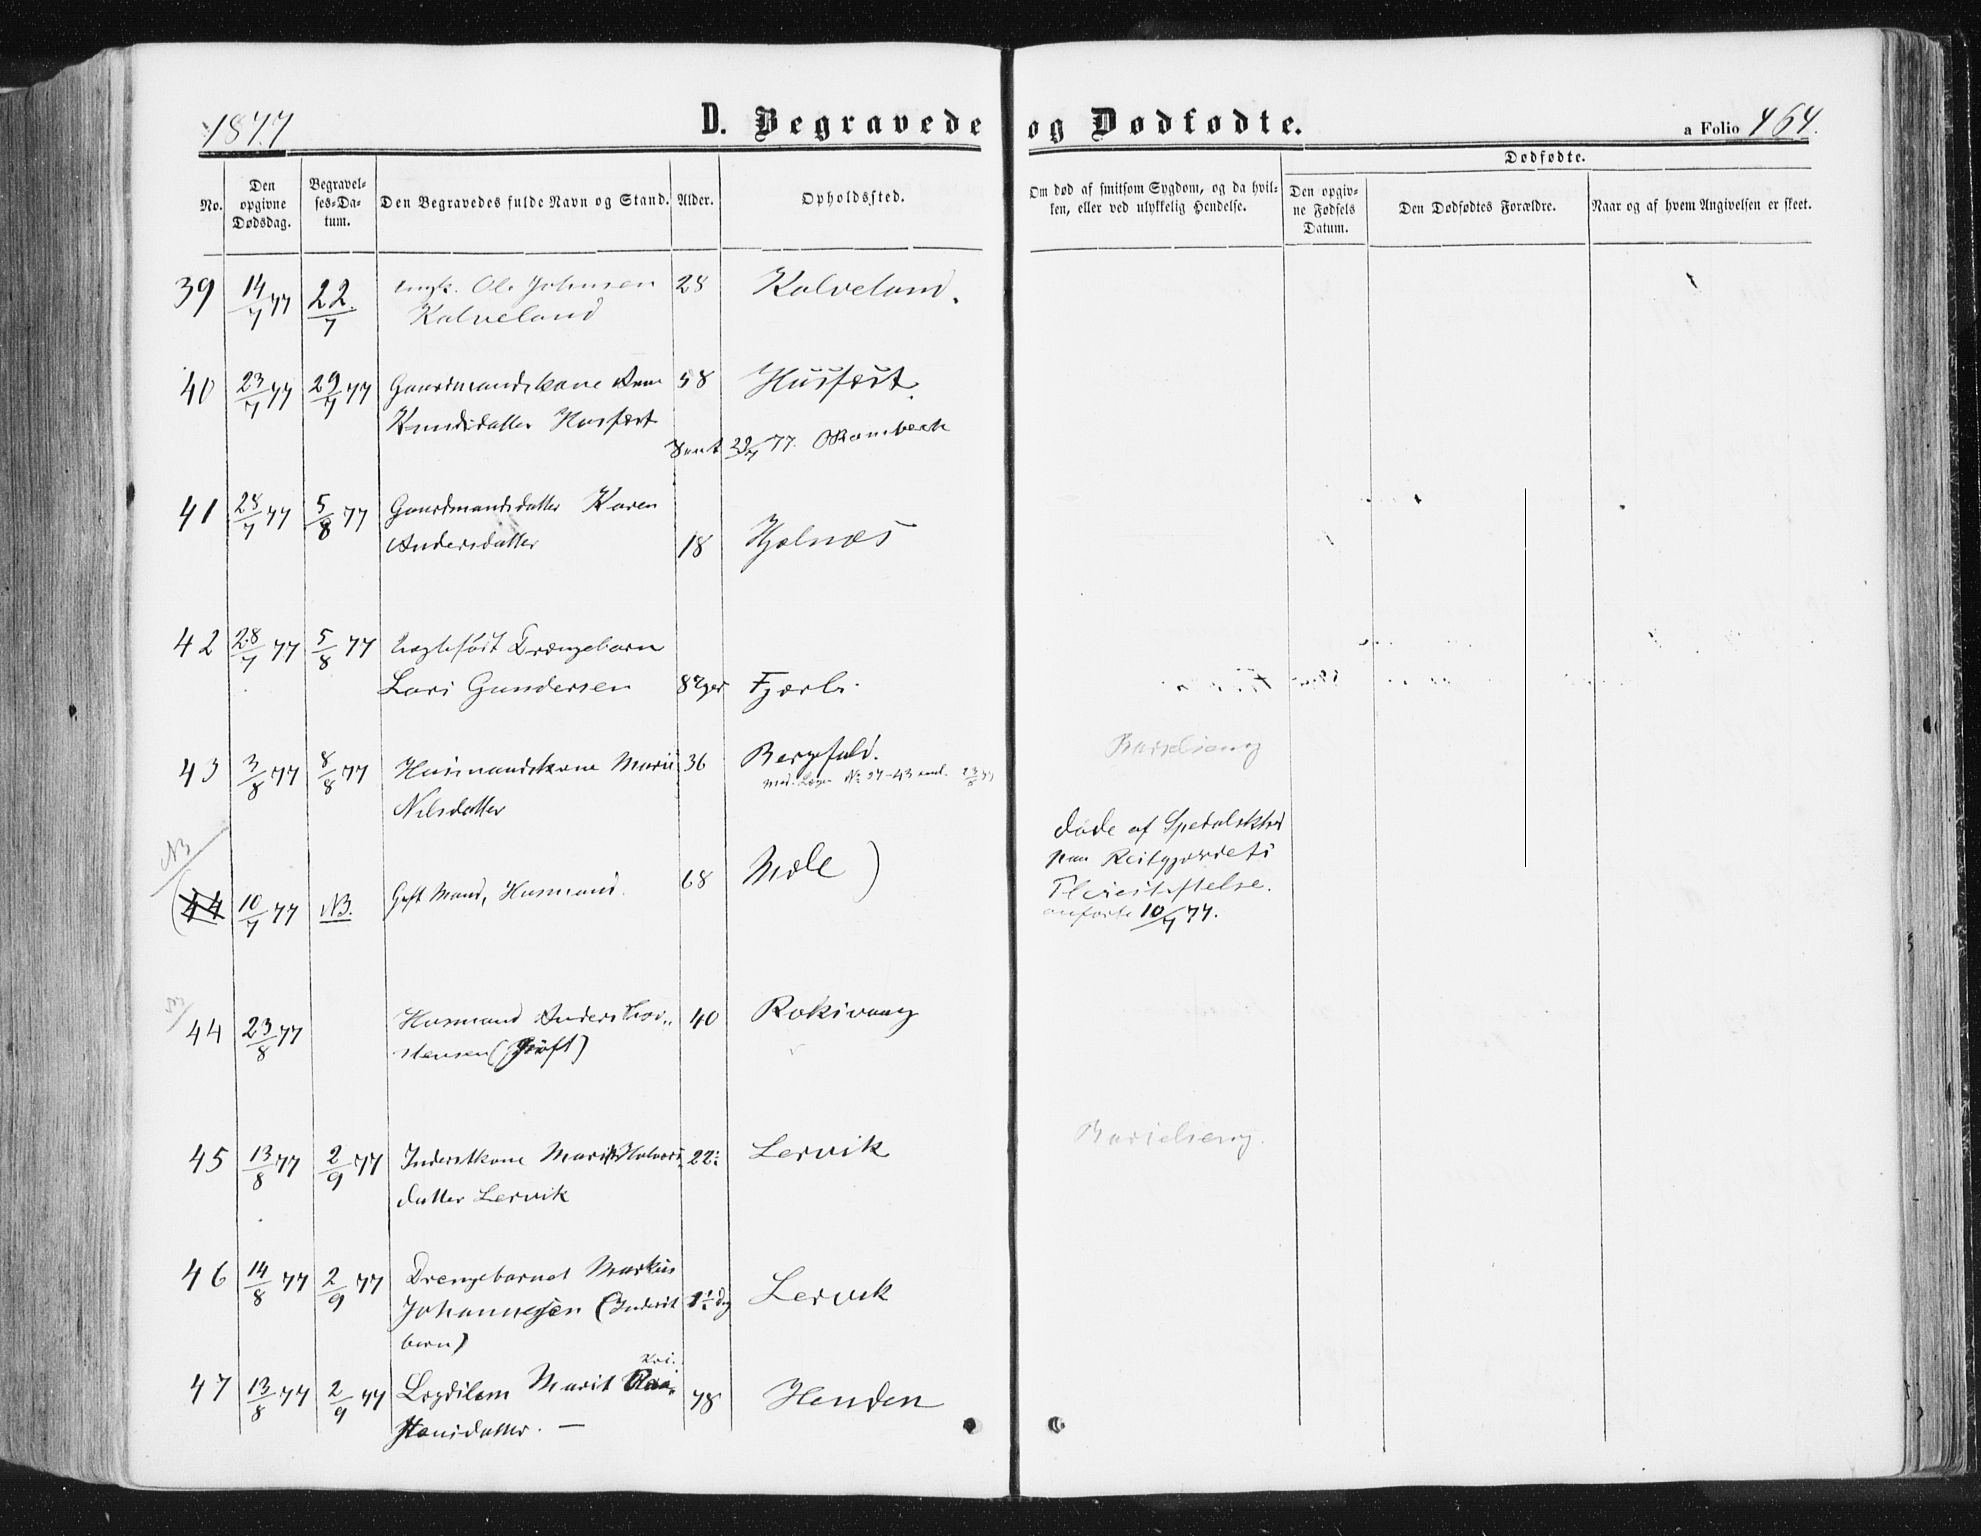 1877
D. Begravede og Dødfødte.
a Folio 464.
Dødfødte.
No.
Den opgivne Dødsdag.
Begravelses-Datum.
Den Begravedes fulde Navn og Stand.
Alder.
Opholdssted.
Om død af smitsom Sygdom, og da hvilken, eller ved ulykkelig Hendelse.
Den opgivne Fødsels Datum.
Den Dødfødtes Forældre.
Naar og af hvem Angivelsen er skeet.
39 14/7 77 22/7 Ungk. Ole Johnsen 28 Kalveland.
Kalveland
40 23/7 77 29/7 77 Gaardmandskone 58 Husfæst.
Knudsdatter Husfæst
29/7 77.
41 28/7 77 5/8 77 Gaardmandsdatter Karen
Andersdatter 18 Hjelnæs
42 28/7 77 5/8 77 Uægteført Drængebarn
Lars Gundersen 8 Uger Fjærli
43 3/8 77 8/8 77 Husmandskone Marit 36 Bergfald. Barselseng
No 27-43 23/8 77
Nilsdatter
NB
44 10/7 77 NB. Gift Mand, Husmand. 68 Mæle ) døde af Spedalskhed
paa Reitgjærdets
Pleiestiftelse.
anførte 10/7 77.
NB
44 23/8 77 Husmand Anders Thor- 40 Rokivaag
stensen (Gift)
45 13/8 77 2/9 77 Inderstkone Marit Halvors- 22 Lervik Barselseng.
datter Lervik
46 14/8 77 2/9 77 Drengebarnet Markus
Johannesen (Inderst Lervik
barn)
Kri-
47 13/8 77 2/9 77 Lægdslem Marit 78 Henden
stensdatter. —